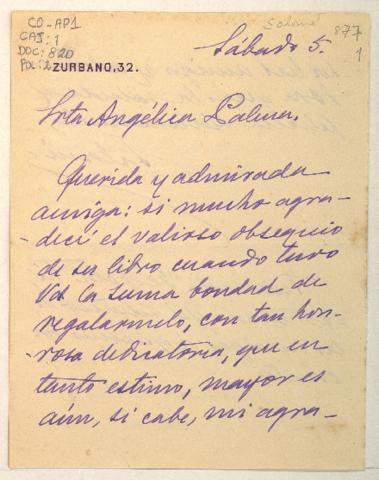 CO-AP1
CAJ: 1
DOC: 820
FOL: 2
Salomé
877
1
ZURBANO, 32.
Sábado 5.
Srta Angélica Palma.
Querida y admirada
amiga: si mucho agra-
-decí el valioso obsequio
de su libro cuando tuvo
Vd. la suma bondad de
regalarmelo, con tan hon-
-rosa dedicatoria, que en
tanto estimo, mayor es
aún, si cabe, mi agra-